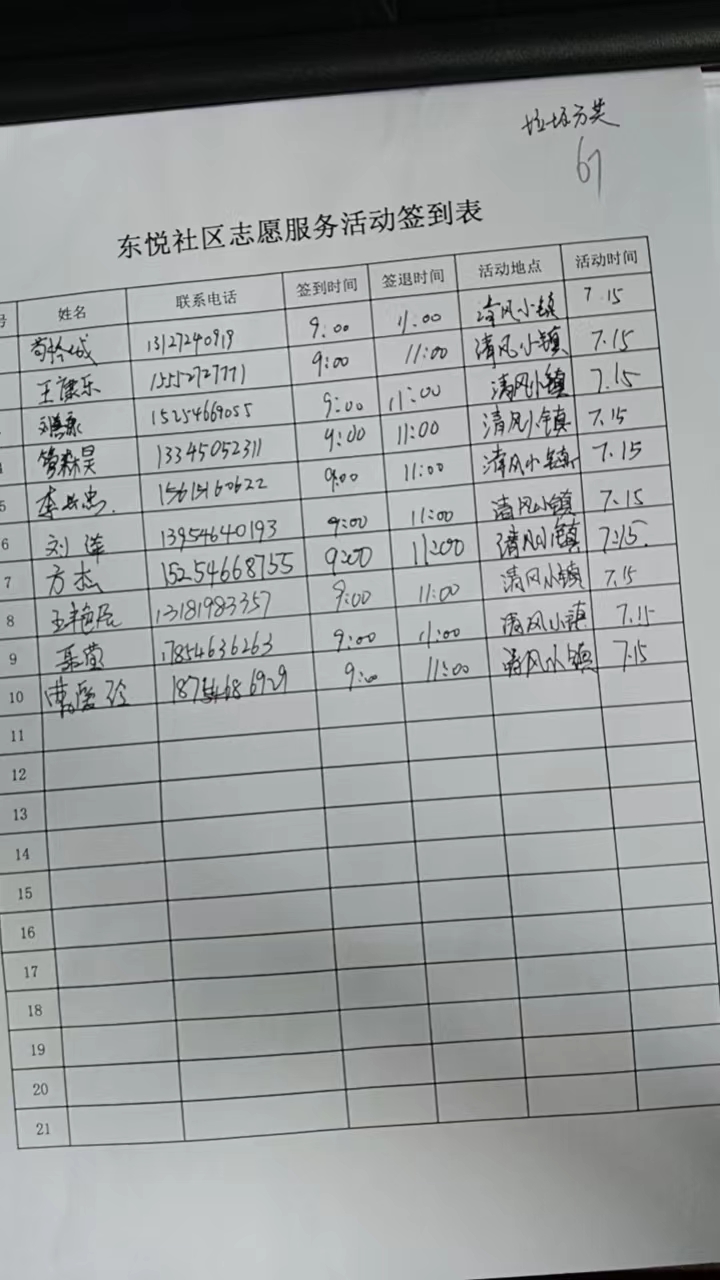 垃圾分类
67
东悦社区志愿服务活动签到表
号 姓名 联系电话 签到时间 签退时间 活动地点 活动时间
13127240919 9:00 11:00 清风小镇 7.15
王康乐 15552727771 9:00 11:00 清风小镇 7.15
15254669055 9:00 11:00 清风小镇 7.15
管森昊 13345052311 9:00 11:00 清风小镇 7.15
5 李兵忠 15615160622 9:00 11:00 清风小镇 7.15
6 刘萍 13954640193 9:00 11:00 清风小镇 7.15
7 方杰 15254668755 9:00 11:00 清风小镇 7.15
8 王艳民 13181983357 9:00 11:00 清风小镇 7.15
9 17854636263 9:00 11:00 清风小镇 7.15
10 18754686929 9:00 11:00 清风小镇 7.15
11
12
13
14
15
16
17
18
19
20
21